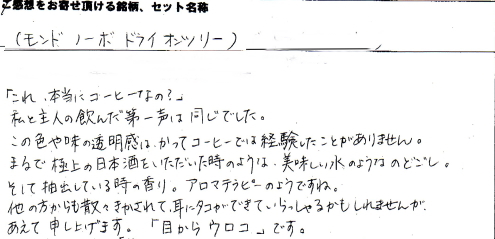 ご感想をお寄せ頂ける銘柄、セット名称
(モンド ノーボ ドライ オンツリー)
「これ、本当にコーヒーなの?」
私と主人の飲んだ第一声は同じでした。
この色や味の透明感は、かつてコーヒーでは経験したことがありません。
まるで極上の日本酒をいただいた時のような、美味しい水のようなのどごし。
そして抽出している時の香り。アロマテラピーのようですね。
他の方からも散々きかされて、耳にタコができていらっしゃるかもしれませんが、
あえて申し上げます。「目からウロコ」です。